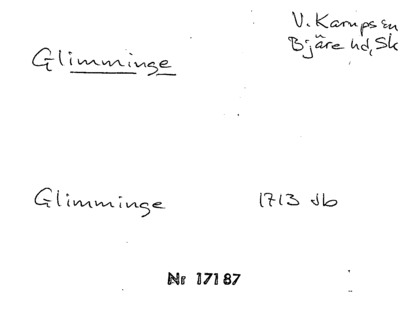 Glimminge
V. Karups sn
Bjäre hd, Sk
Glimminge 1713 Jb
Nr 17187